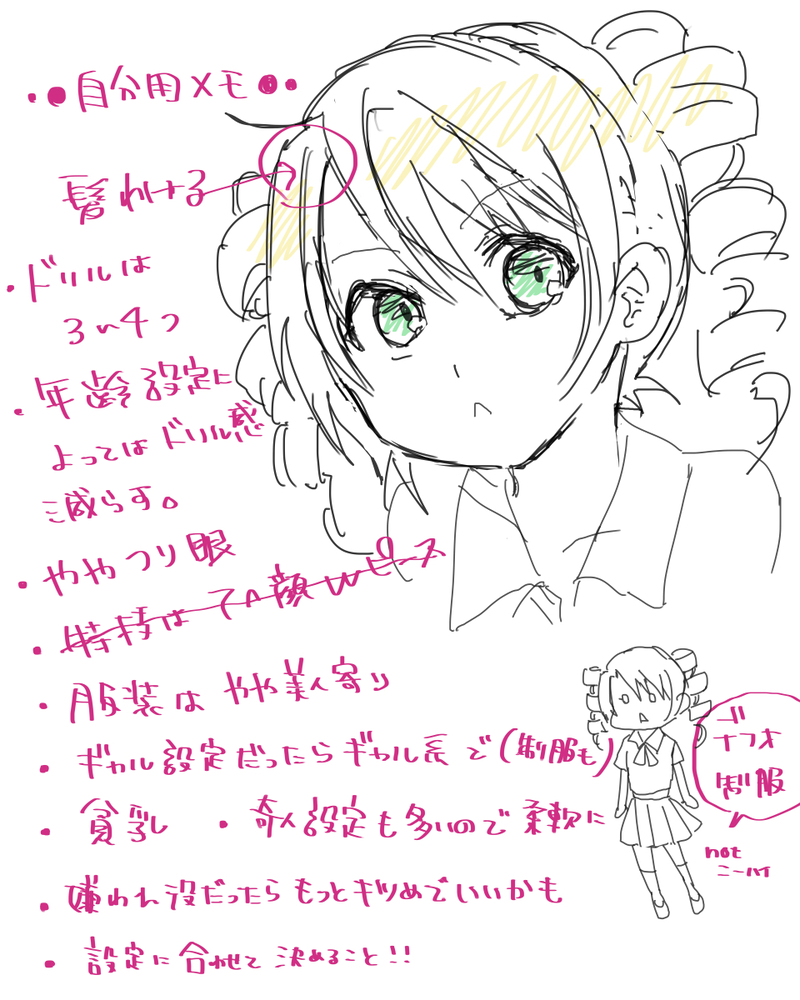 自分用メモ
髪わける
・ドリルは
3〜4つ
・年齢設定に
よってはドリル感
減らす。
・ややつり眼
・特技はアヘ顔wピース
・服装はやや美人寄り
・ギャル設定だったらギャル系で(制服も)
・貧乳 ・奇人設定も多いので柔軟に
・嫌われ役だったらもっとキツめでいいかも
・設定に合わせて決めること!!
デフォ
制服
not
ニーハイ